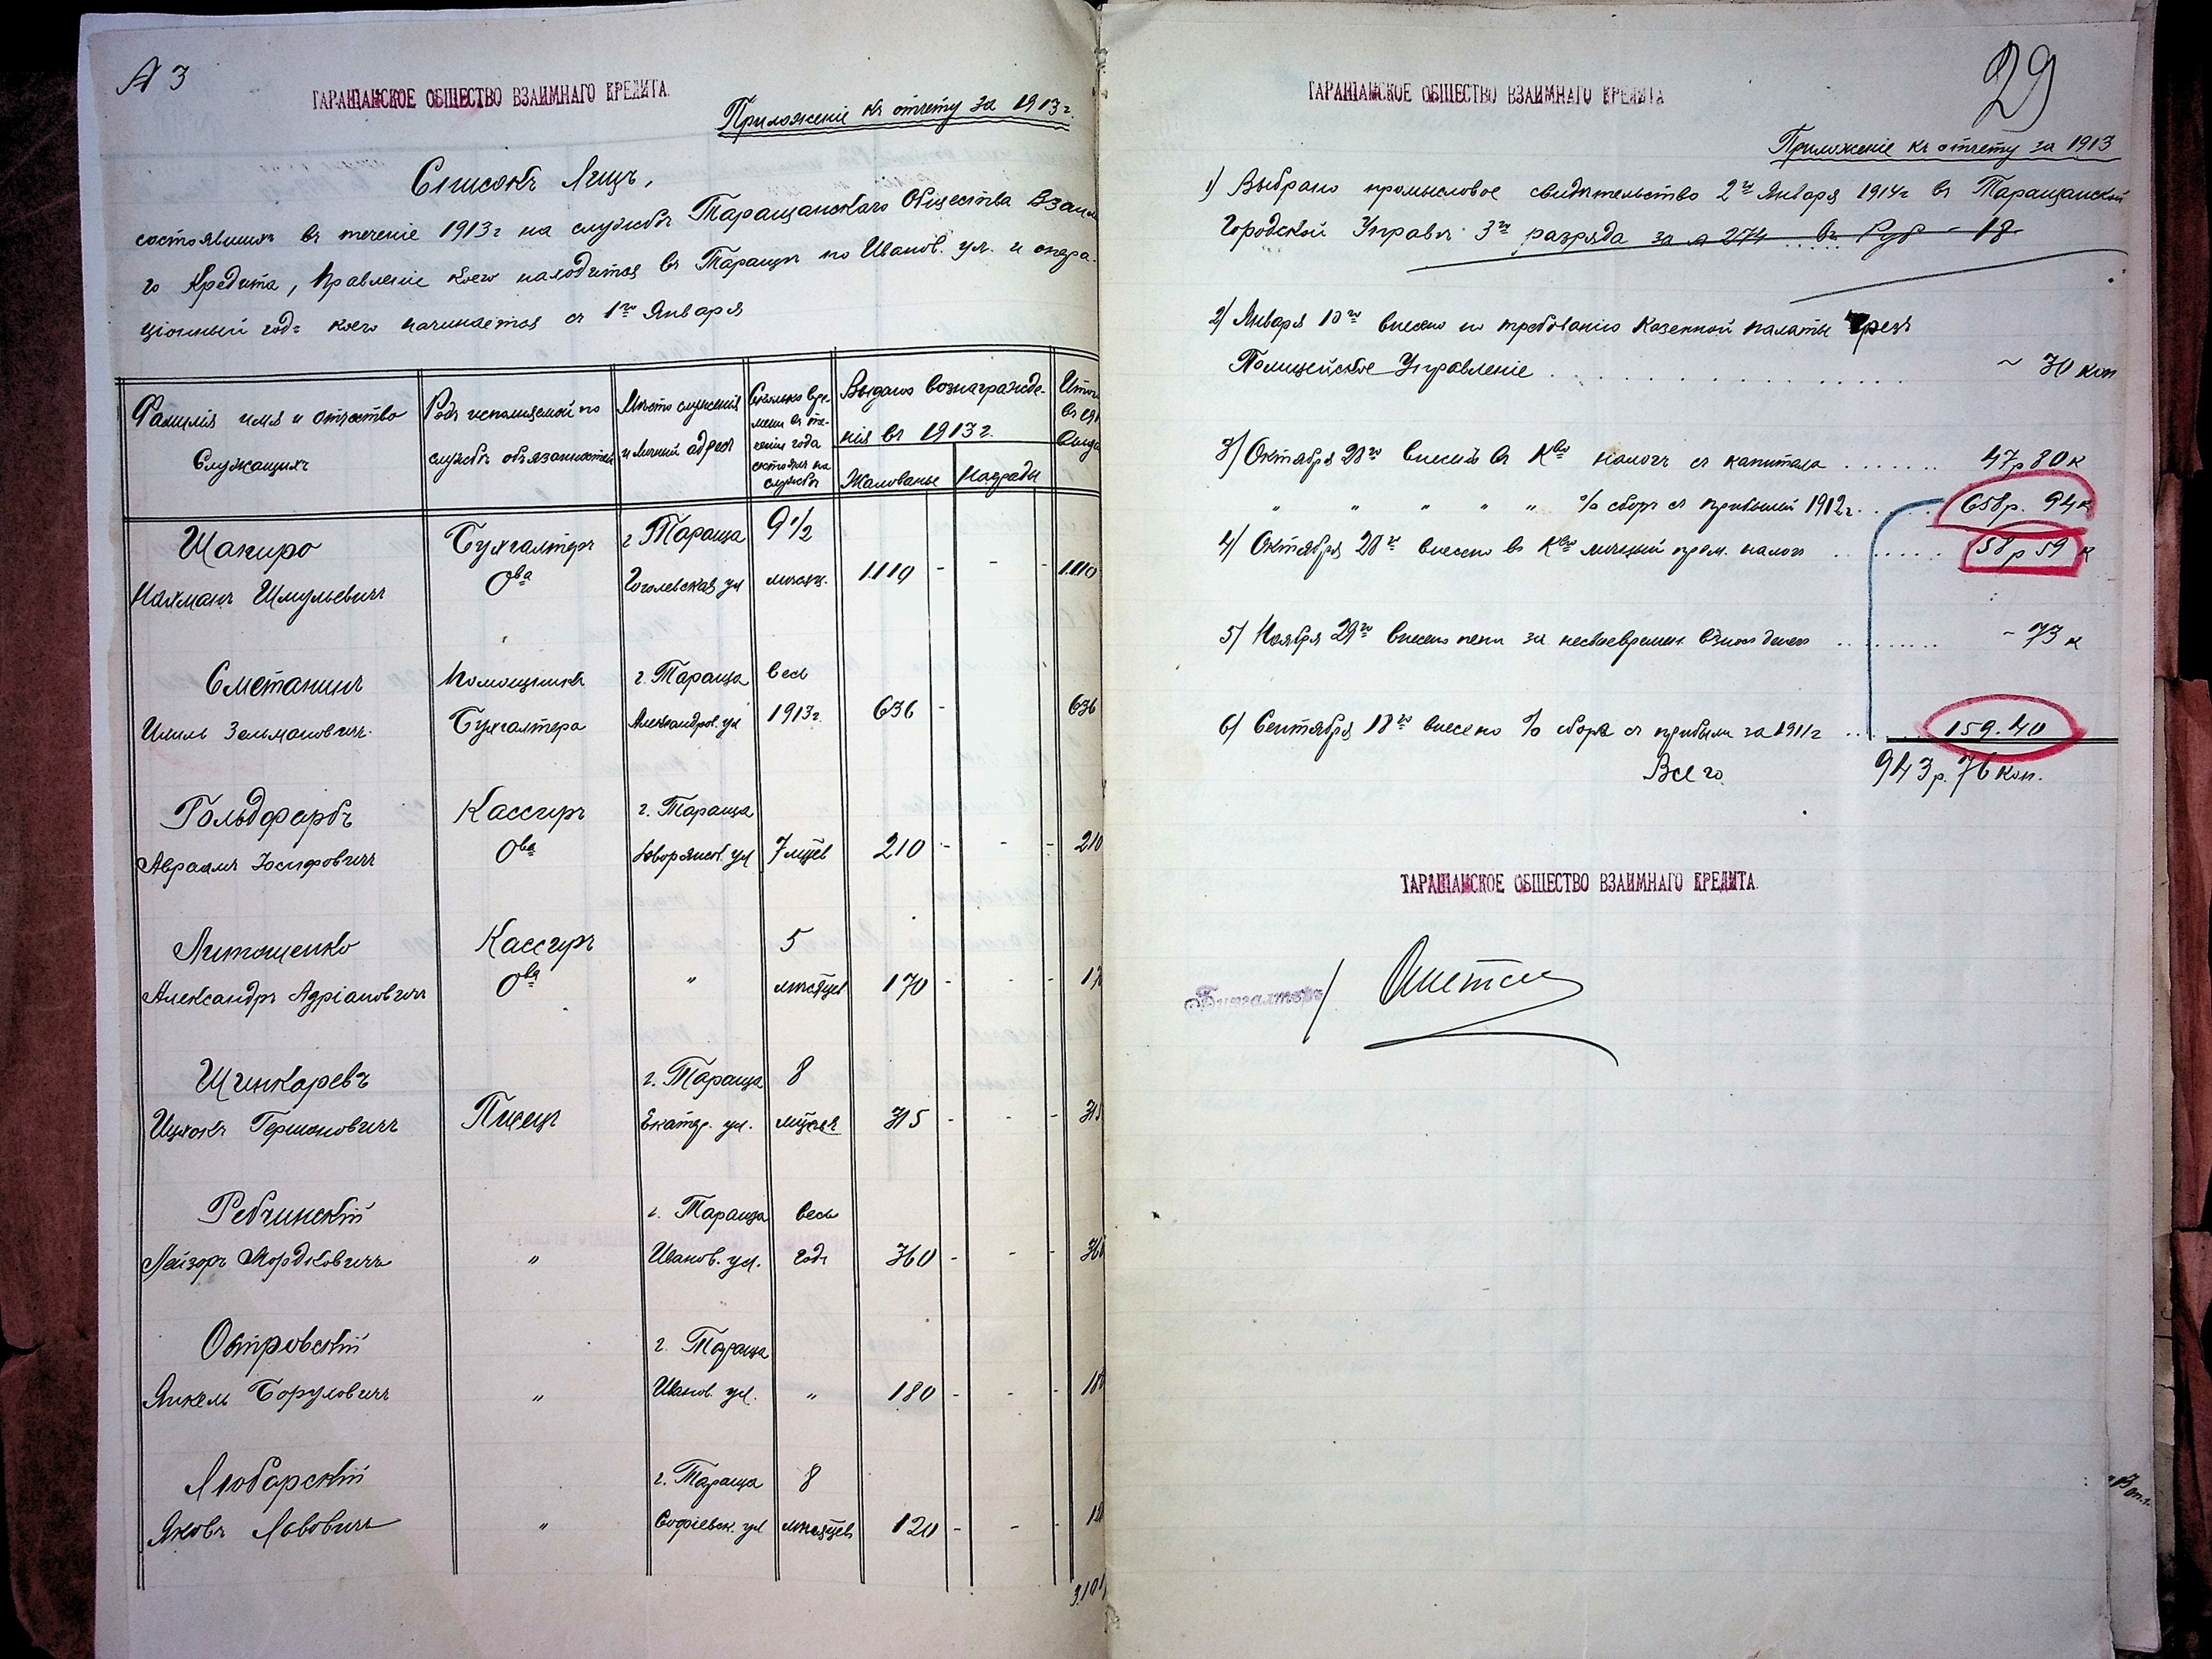 А 3
ТАРАЩАНСКОЕ ОБЩЕСТВО ВЗАИМНАГО КРЕДИТА.
Приложеніе къ отчету за 1913 г.
Списокъ Лицъ,
состоявшихъ въ теченіе 1913 г на службѣ Таращанскаго Общества Взаим
го Кредита, Правленіе коего находится въ Таращѣ по Иванов. ул. и опера-
ціонный годъ коего начинается съ 1го Января
Фамилія имя и отчество Служащихъ
Родъ исполняемой по службѣ обязанности
Мѣсто служенія и личный адресъ
Сколько вре-
мени въ те-
ченіи года
состоялъ на
службѣ
Выдано вознагражде-
нія въ 1913 г.
Жалованье Награды
Шапиро Бухгалтеръ г Тараща 9 1/2
Нахманъ Шмульевичъ Ова Гоголевская ул мѣсяц. 1110 - - - 1110
Сметанинъ Помощникъ г. Тараща весь
Ишль Зельмановичъ Бухгалтера Александров. ул 1913 г. 636 - 636
Гольдфарбъ Кассиръ г. Тараща
Авраамъ Іосифовичъ Ова Дворянск. ул 7 мѣсв 210 - - - 210
Литошенко Кассиръ 5
Александръ Адріановичъ Ова " мѣсяцев 170 - - - 17
Шинкаревъ г. Тараща 8
Ицхокъ Гершоновичъ Писецъ Екатер. ул. 315 - - - 315
Ребчинскій г. Тараща весь
Лейзоръ Мордковичъ " Иванов. ул. годъ 360 - - - 360
Островскій г. Тараща
Янкель Боруловичъ " Иванов. ул. " 180 - - - 180
Любарскій г. Тараща 8
Яковъ Львовичъ " Софіевск. ул мѣсяцев 120 - - - 120
3.101
29
ТАРАЩАНСКОЕ ОБЩЕСТВО ВЗАИМНАГО КРЕДИТА
Приложеніе къ отчету за 1913
1) Выбрано промысловое свидѣтельство 2го Января 1914 г въ Таращанской
Городской Управѣ 3го разряда за № 274 въ Руб - 18
2) Января 10го внесено по требованію Казенной палаты чрезъ
Полицейское Управленіе . . . . . ~ 30 коп
3) Октября 28го внесено въ Кво налогъ съ капитала . . . . . 47 р 80 к
" " " " " % сборъ съ прибыли 1912 г. . . . 658 р. 94 к
4) Октября 28го внесено въ Кво личный пром. налогъ . . . . . 58 р 59 к
5) Ноября 29го внесено пени за несвоевремен. взносъ денегъ . . . . . - 73 к
6) Сентября 18го внесено % сбора съ прибыли за 1911 г . . . . 159.40
Всего 943 р. 76 коп.
ТАРАЩАНСКОЕ ОБЩЕСТВО ВЗАИМНАГО КРЕДИТА.
Бухгалтеръ